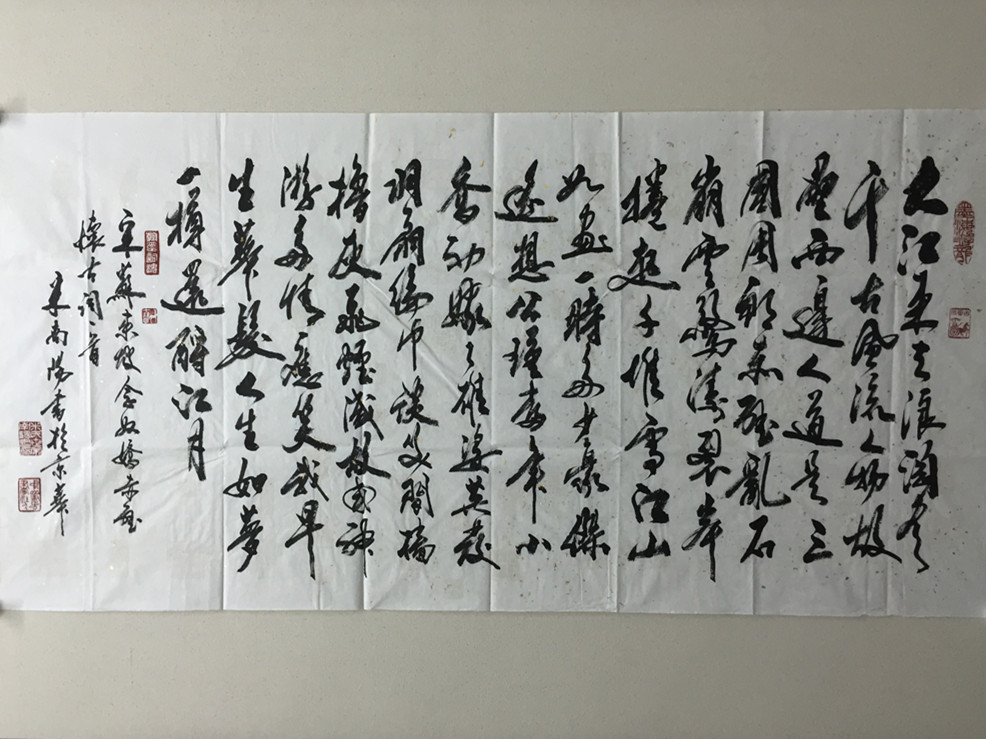 大江东去浪淘尽
千古风流人物故
垒西边人道是三
国周郎赤壁乱石
崩云惊涛裂岸
捲起千堆雪江山
如画一时多少豪杰
遥想公瑾当年小
乔初嫁了雄姿英发
羽扇纶巾谈笑间樯
橹灰飞烟灭故国神
游多情应笑我早
生华发人生如梦
一樽还酹江月
宋苏东坡念奴娇赤壁
怀古词一首
宋南阳书于京华